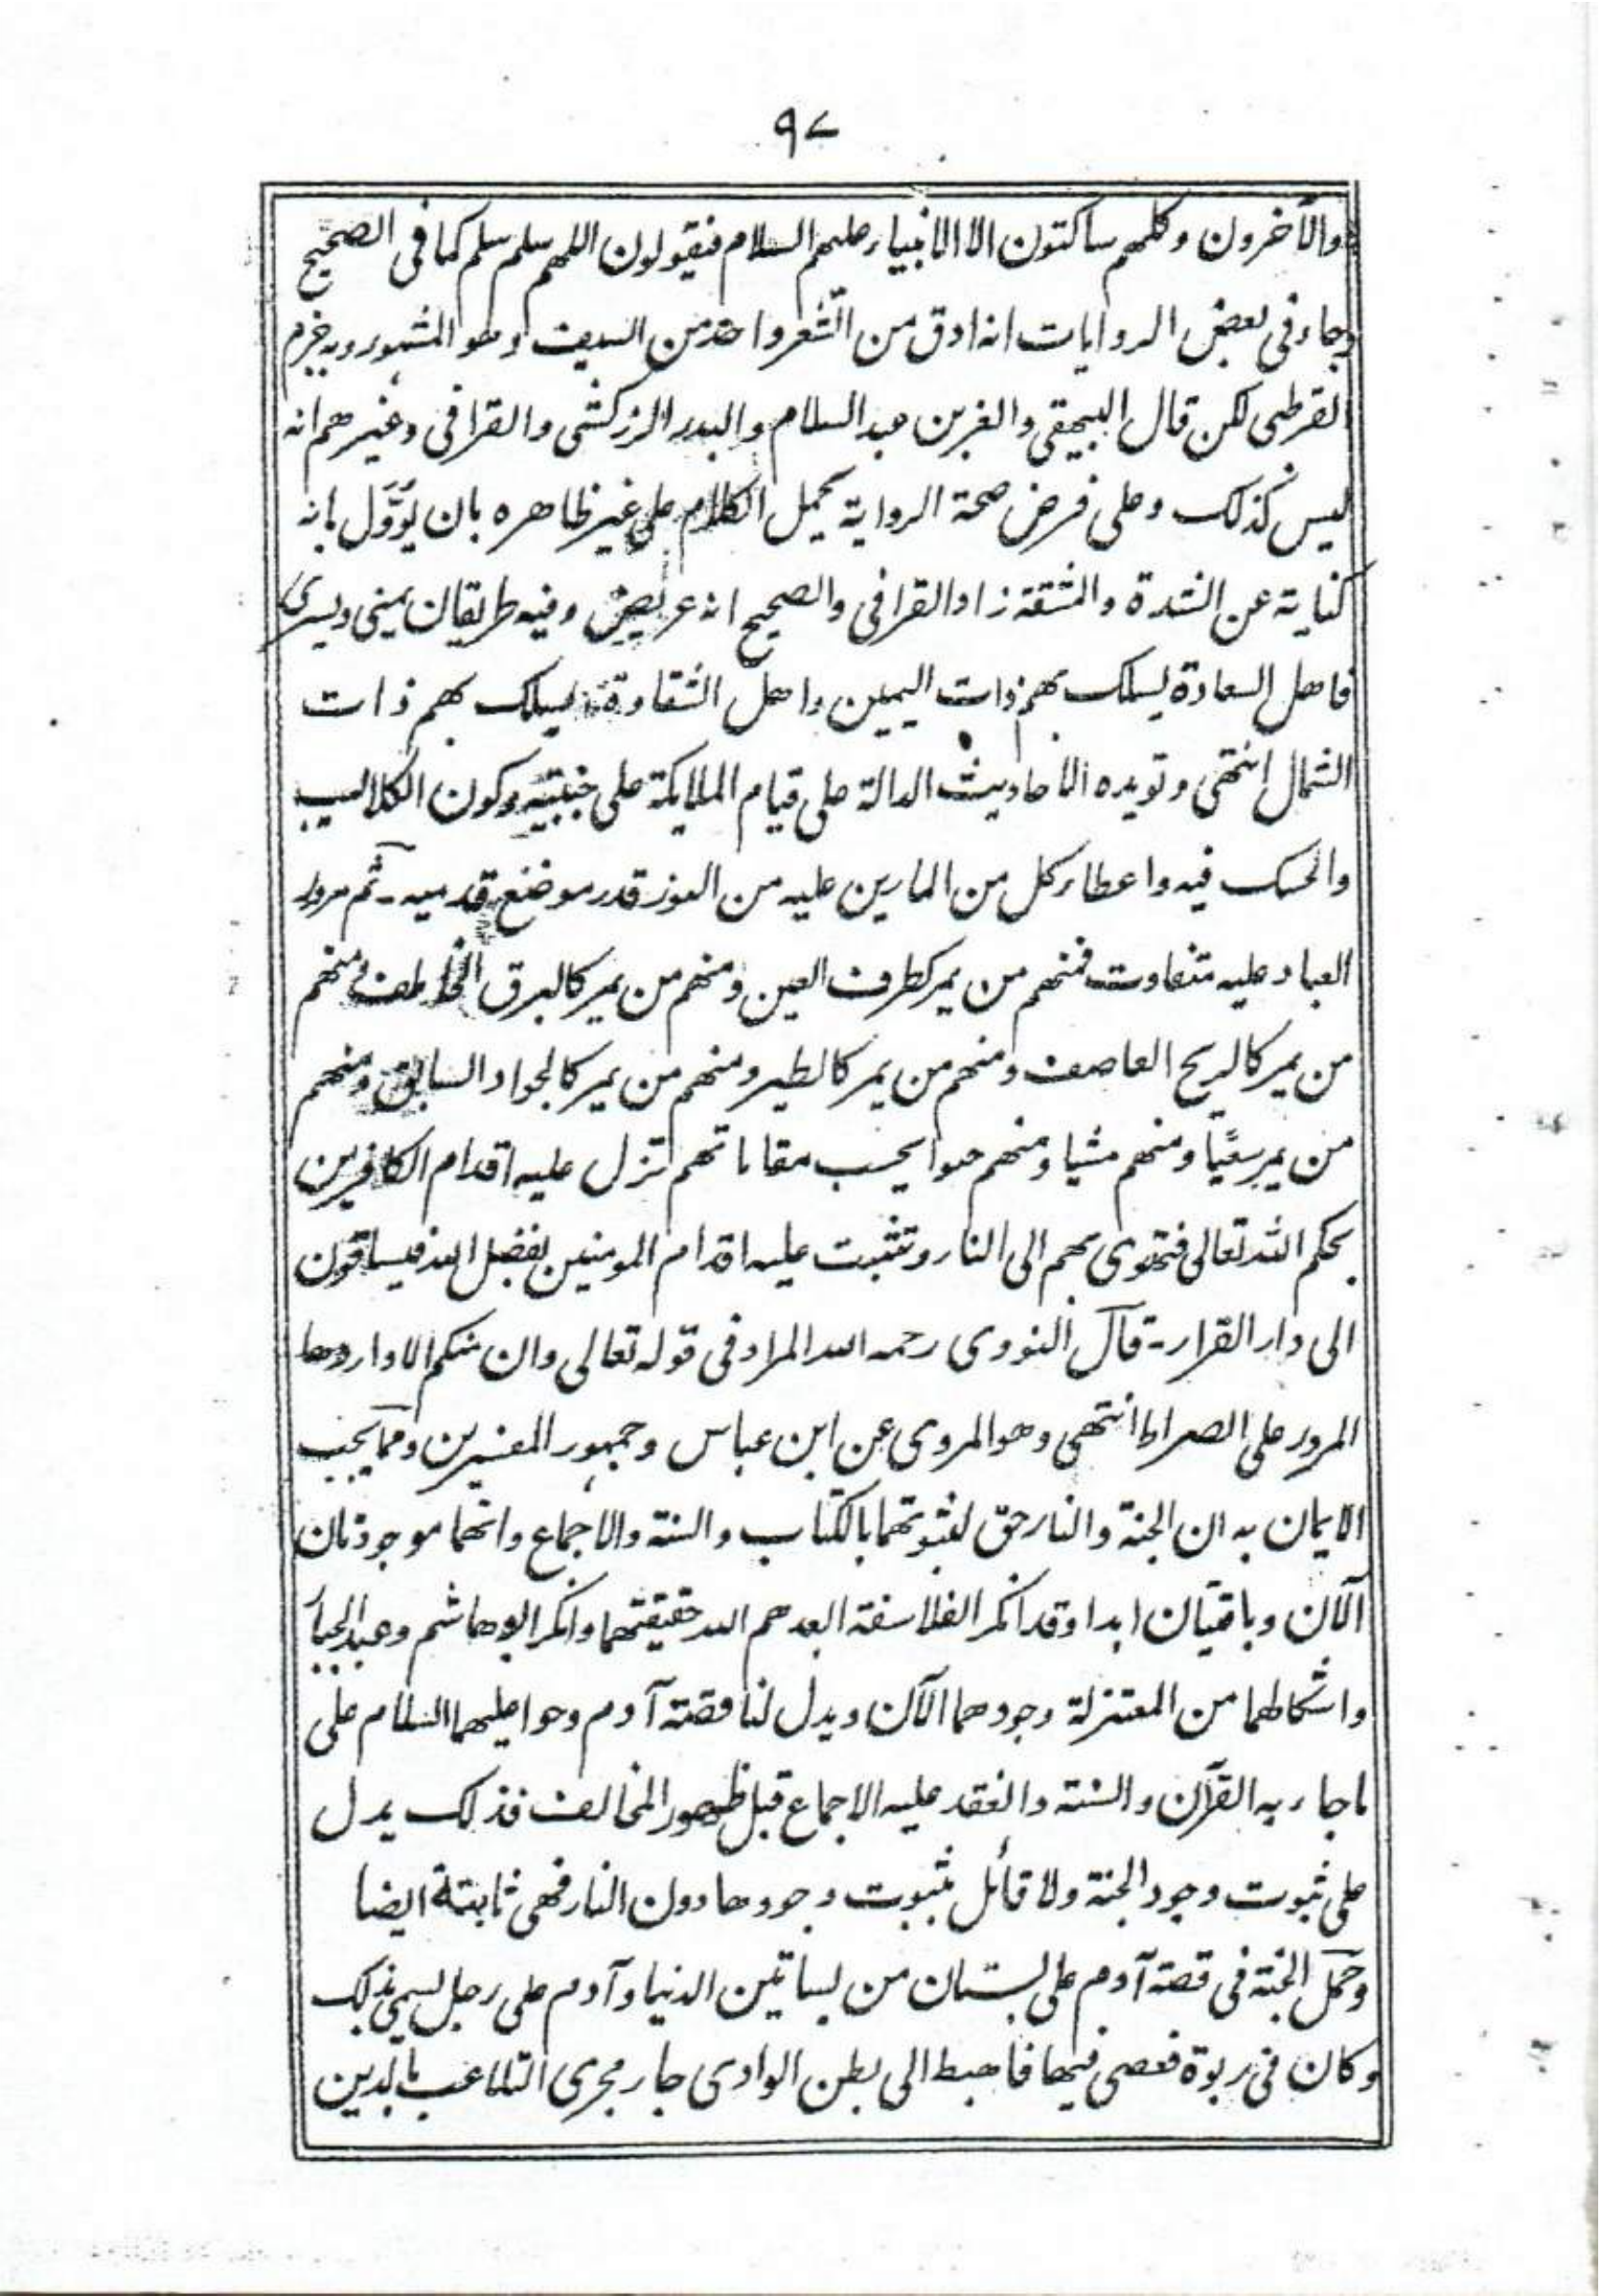 ٩٧
والآخرون وكلهم ساكتون الا الانبياء عليهم السلام فيقولون اللهم سلم سلم كما فى الصحيح
وجاء فى بعض الروايات انه ادق من الشعر واحد من السيف وهو المشهور وبه جزم
القرطبى لكن قال البيهقى والعز بن عبد السلام والبدر الزركشى والقرافى وغيرهم انه
ليس كذلك وعلى فرض صحة الرواية يحمل الكلام على غير ظاهره بان يؤول بانه
كناية عن الشدة والمشقة زاد القرافى والصحيح انه عريض وفيه طريقان يمنى ويسرى
فاهل السعادة يسلك بهم ذات اليمين واهل الشقاوة يسلك بهم ذات
الشمال انتهى وتويده الاحاديث الدالة على قيام الملايكة على جنبتيه وكون الكلاليب
والحسك فيه واعطاء كل من المارين عليه من النور قدر موضع قدميه ـ ثم مرور
العباد عليه متفاوت فمنهم من يمر كطرف العين ومنهم من يمر كالبرق الخاطف ومنهم
من يمر كالريح العاصف ومنهم من يمر كالطير ومنهم من يمر كالجواد السابق ومنهم
من يمر سعيًا ومنهم مشيا ومنهم حبوا بحسب مقاماتهم تزل عليه اقدام الكافرين
بحكم الله تعالى فتهوى بهم الى النار وتثبت عليه اقدام المومنين بفضل الله فيساقون
الى دار القرار ـ قال النووى رحمه الله المراد فى قوله تعالى وان منكم الا واردها
المرور على الصراط انتهى وهو المروى عن ابن عباس وجمهور المفسرين ومما يجب
الايمان به ان الجنة والنار حق لثبوتهما بالكتاب والسنة والاجماع وانهما موجودتان
الآن وباقيتان ابدا وقد انكر الفلاسفة ابعدهم الله حقيقتهما وانكر ابو هاشم وعبد الجبار
واشكالهما من المعتزلة وجودهما الآن ويدل لنا قصة آدم وحوا عليهما السلام على
ما جاء به القرآن والسنة وانعقد عليه الاجماع قبل ظهور المخالف فذلك يدل
على ثبوت وجود الجنة ولا قائل بثبوت وجودها دون النار فهى ثابتة ايضا
وحمل الجنة فى قصة آدم على بستان من بساتين الدنيا وآدم على رجل يسمى بذلك
وكان فى ربوة فعصى فيها فاهبط الى بطن الوادى جار مجرى التلاعب بالدين